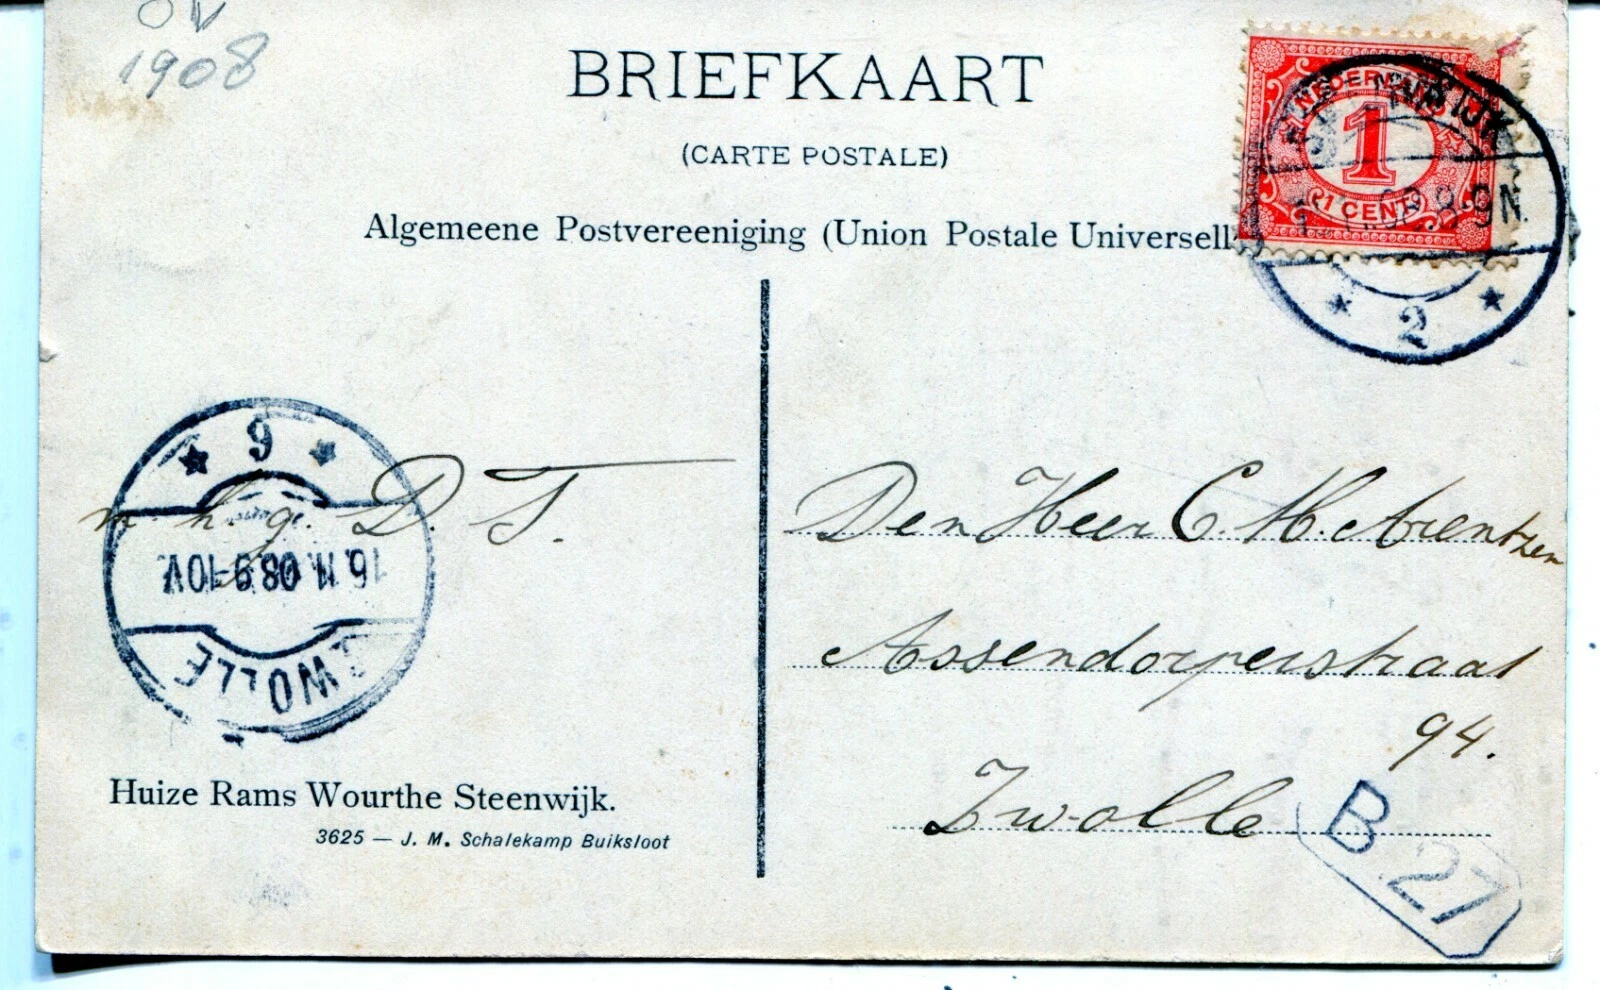 OV
1908
BRIEFKAART
(CARTE POSTALE)
Algemeene Postvereeniging (Union Postale Universell
NEDERLAND
1
1 CENT
WIJK
8-9N
2
9
16.11.08.9-10V.
ZWOLLE
m. h. g. D. T.
Den Heer C. H. Arentzen
Assendorperstraat
94.
Zwolle
B 27
Huize Rams Wourthe Steenwijk.
3625 — J. M. Schalekamp Buiksloot